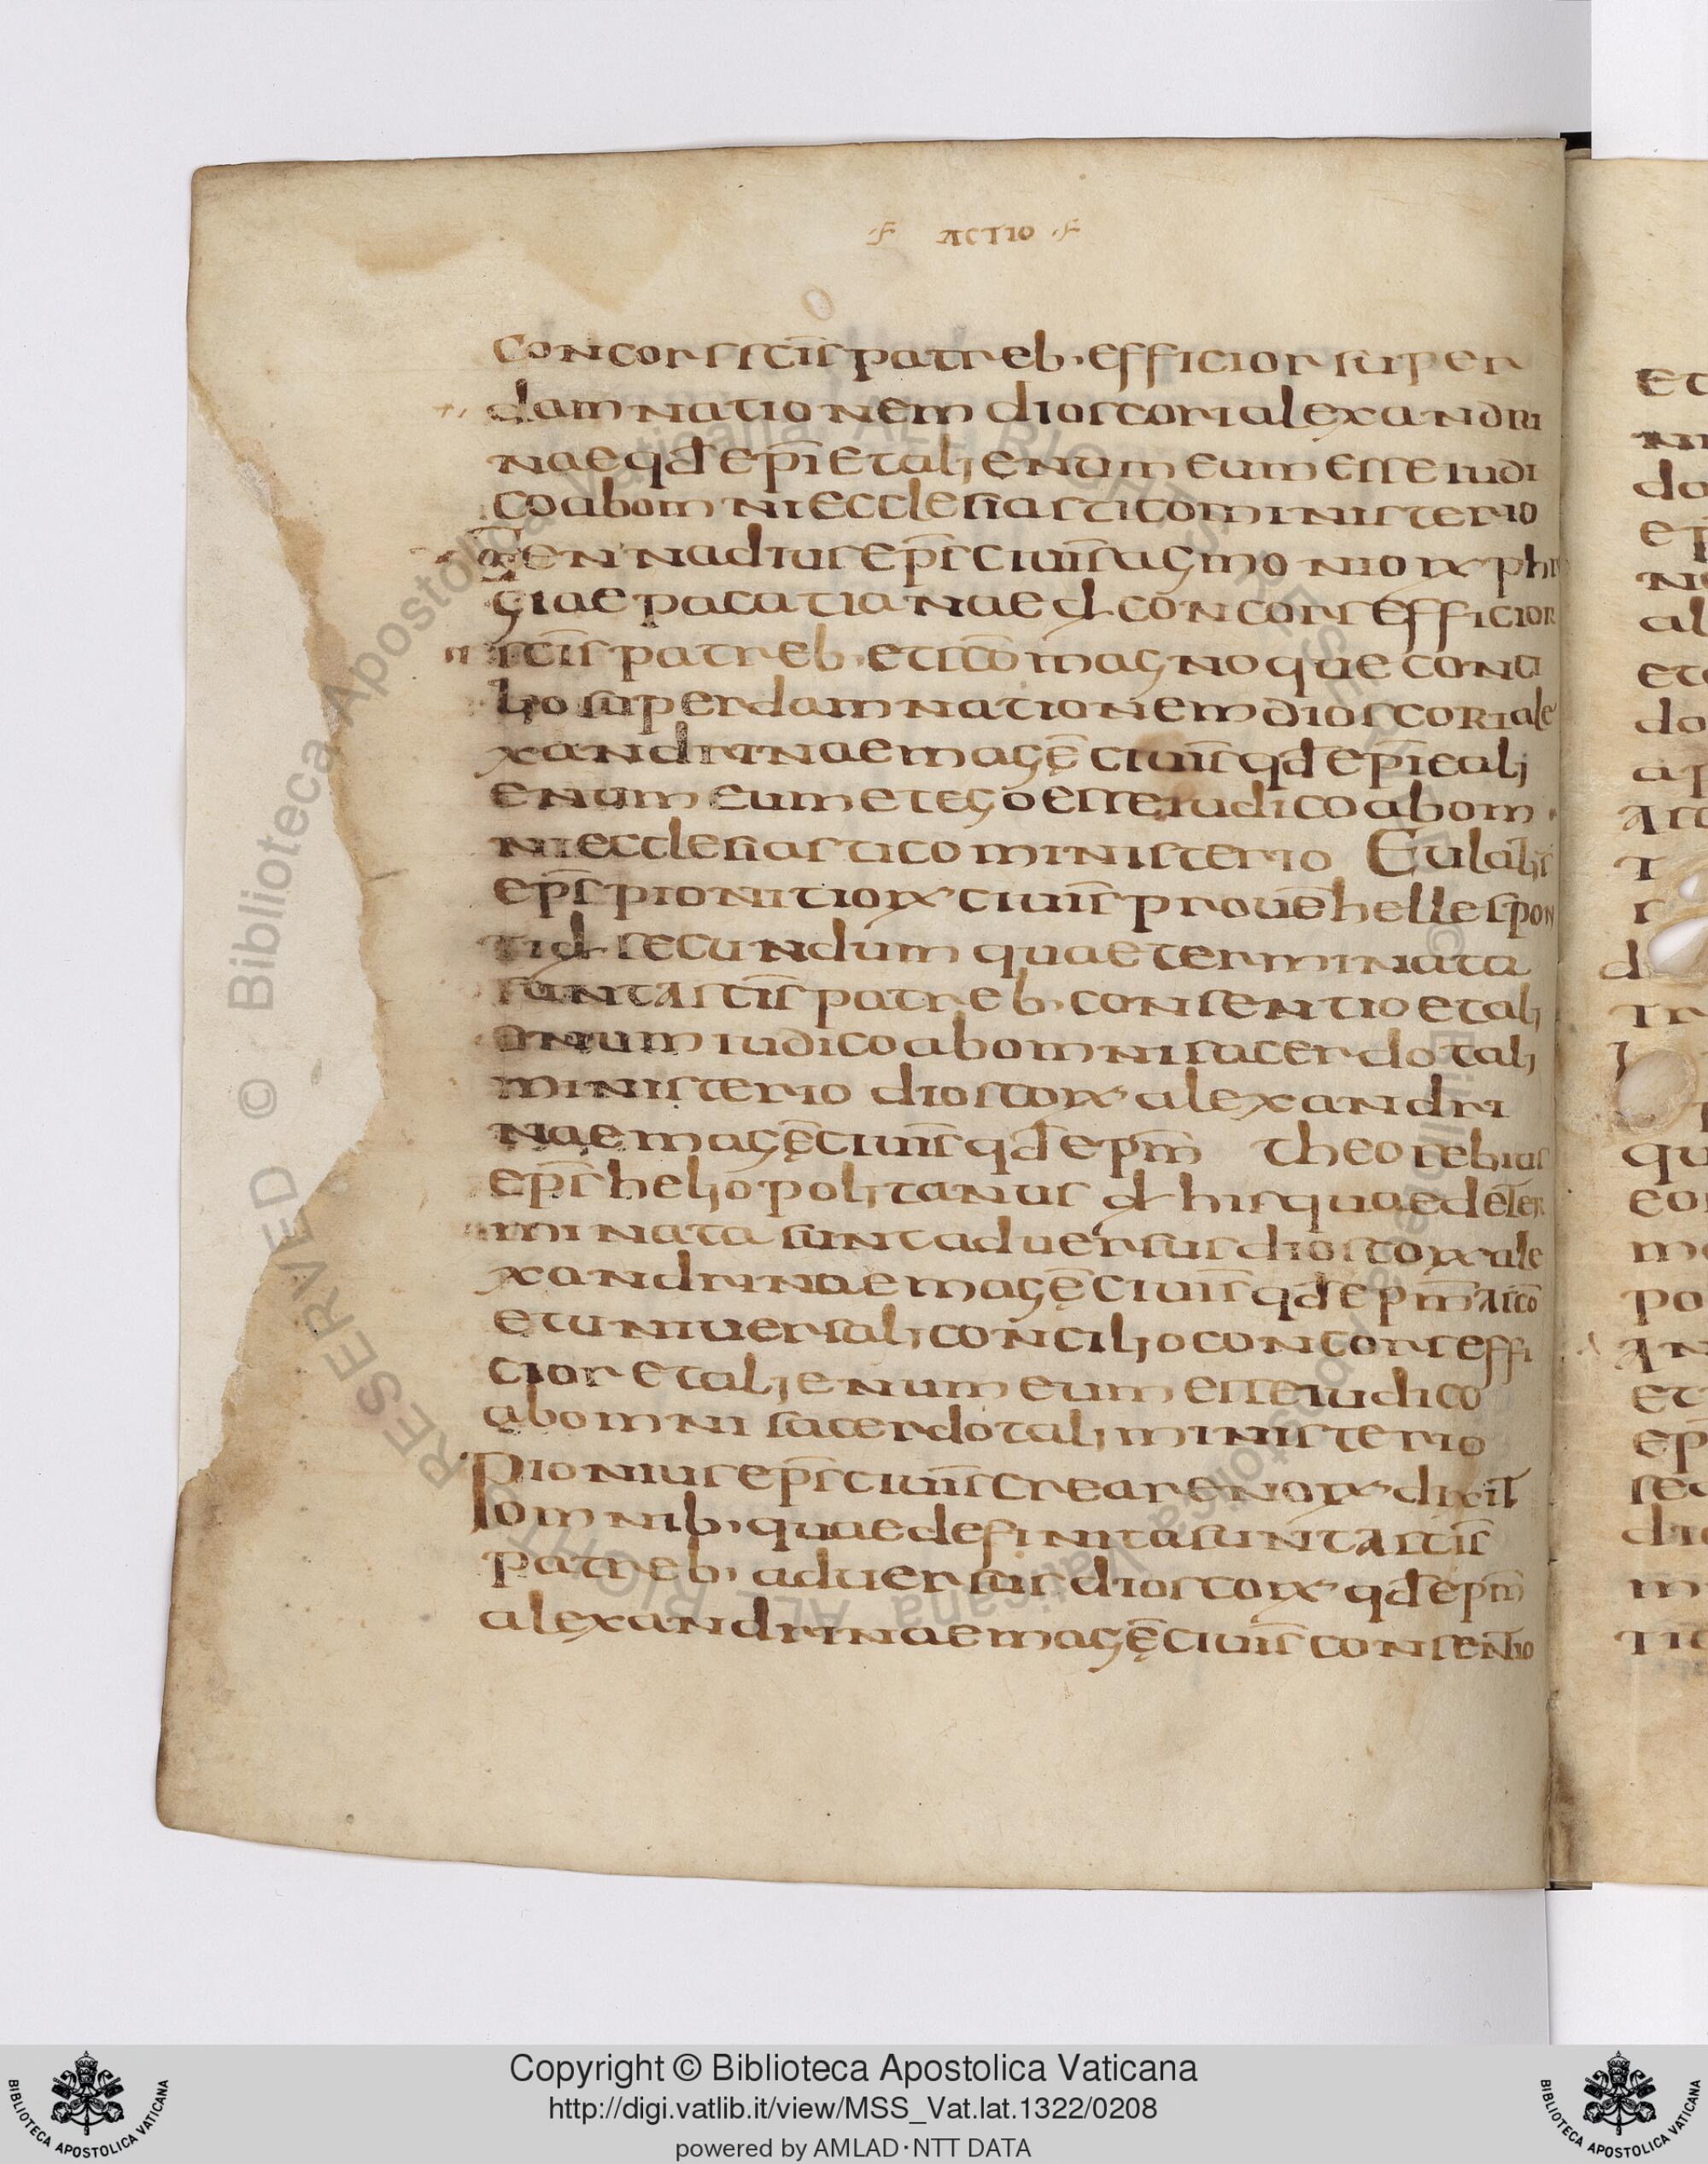 ACTIO
concors scis patreb· efficior super
damnationem dioscori alexandri
nae qd epi et alienum eum esse iudi
co ab omni ecclesiastico ministerio
Gennadius eps ciuis acmoniox phi
giae pacatianae d concors efficior
scis patreb· et sco magnoque conci
lio super damnationem dioscori ale
xandrinae mage ciuis qd epi et ali
enum eum et ego esse iudico ab om
ni ecclesiastico ministerio Eulalis
eps pionitiox ciuis proue hellespon
ti d secundum quae terminata
sunt a scis patreb· consentio et ali
enum iudico ab omni sacerdotali
ministerio dioscorx alexandri
nae mage ciuis qd epm theosebius
eps heliopolitanus d his quae deter
minata sunt aduersus dioscorx ale
xandrinae mage ciuis qd epm a sco
et uniuersali concilio concors effi
cior et alienum eum esse iudico
ab omni sacerdotali ministerio
Pionius eps ciuis crearenox dixit
omnib· quae definita sunt a scis
patreb· aduersus dioscorx qd epm
alexandrinae mage ciuis consentio
Copyright © Biblioteca Apostolica Vaticana
http://digi.vatlib.it/view/MSS_Vat.lat.1322/0208
powered by AMLAD·NTT DATA
BIBLIOTECA APOSTOLICA VATICANA
BIBLIOTECA APOSTOLICA VATICANA